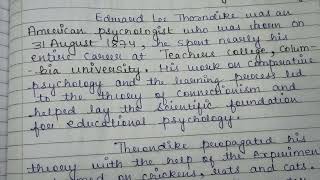 Edward Lee Thorndike was an
American psychologist who was born on
31 August 1874, he spent nearly his
entire career at Teachers college, Colum-
-bia university. His work on comparative
psychology and the learning process led
to the theory of connectionism and
helped lay the scientific foundation
for educational psychology.
Thorndike propagated his
theory with the help of the experimen
on chickens, rats and cats.